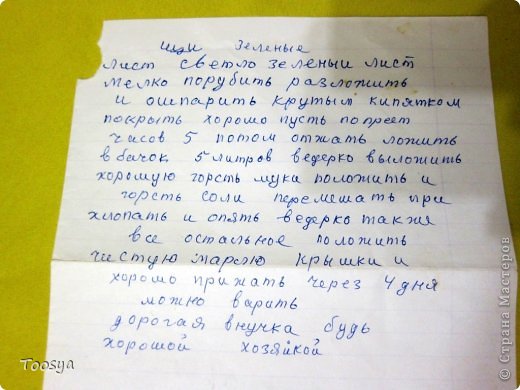 щи зеленые
лист светло зеленый лист
мелко порубить разложить
и ошпарить крутым кипятком
покрыть хорошо пусть попреет
часов 5 потом отжать ложить
в бачок 5 литров ведерко выложить
хорошую горсть мука положить и
горсть соли перемешать при
хлопать и опять ведерко также
все остальное положить
чистую марлю крышки и
хорошо прижать через 4 дня
можно варить
дорогая внучка будь
хорошой хозяйкой
Toosya
© Страна Мастеров